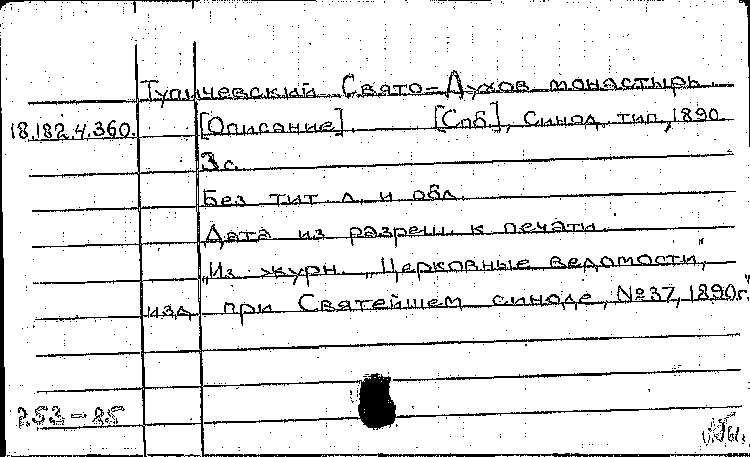 Тупичевский Свято-Духов монастырь.
18.182.4.360. [Описание]. [Спб], Синод. тип., 1890.
3 с.
Без тит. л. и обл.
Дата из разреш. к печати.
„Из журн. „Церковные ведомости",
изд. при Святейшем синоде, №37, 1890г."
253-85